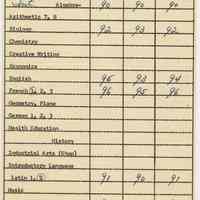 Algebra 90 90 90
Arithmetic 7, 8
Biology 92 93 92
Chemistry
Creative Writing
Economics
English 95 93 94
French 1, 2, 3 96 95 96
Geometry, Plane
German 1, 2, 3
Health Education
History
Industrial Arts (Shop)
Introductory Language
Latin 1, 2 91 90 91
Music